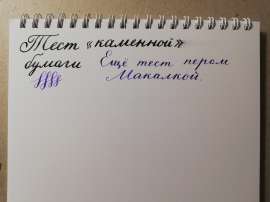 Тест «каменной»
бумаги Ещё тест пером
Макалкой.